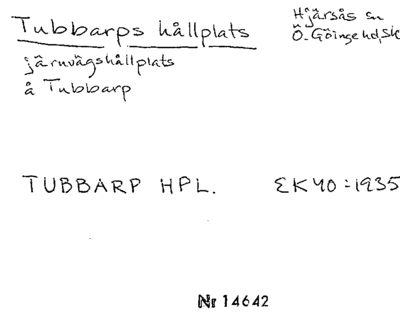 Tubbarps hållplats
Hjärsås sn
Ö. Göinge hd, Sk
järnvägshållplats
å Tubbarp
TUBBARP HPL. EK 40:1935
Nr 14642